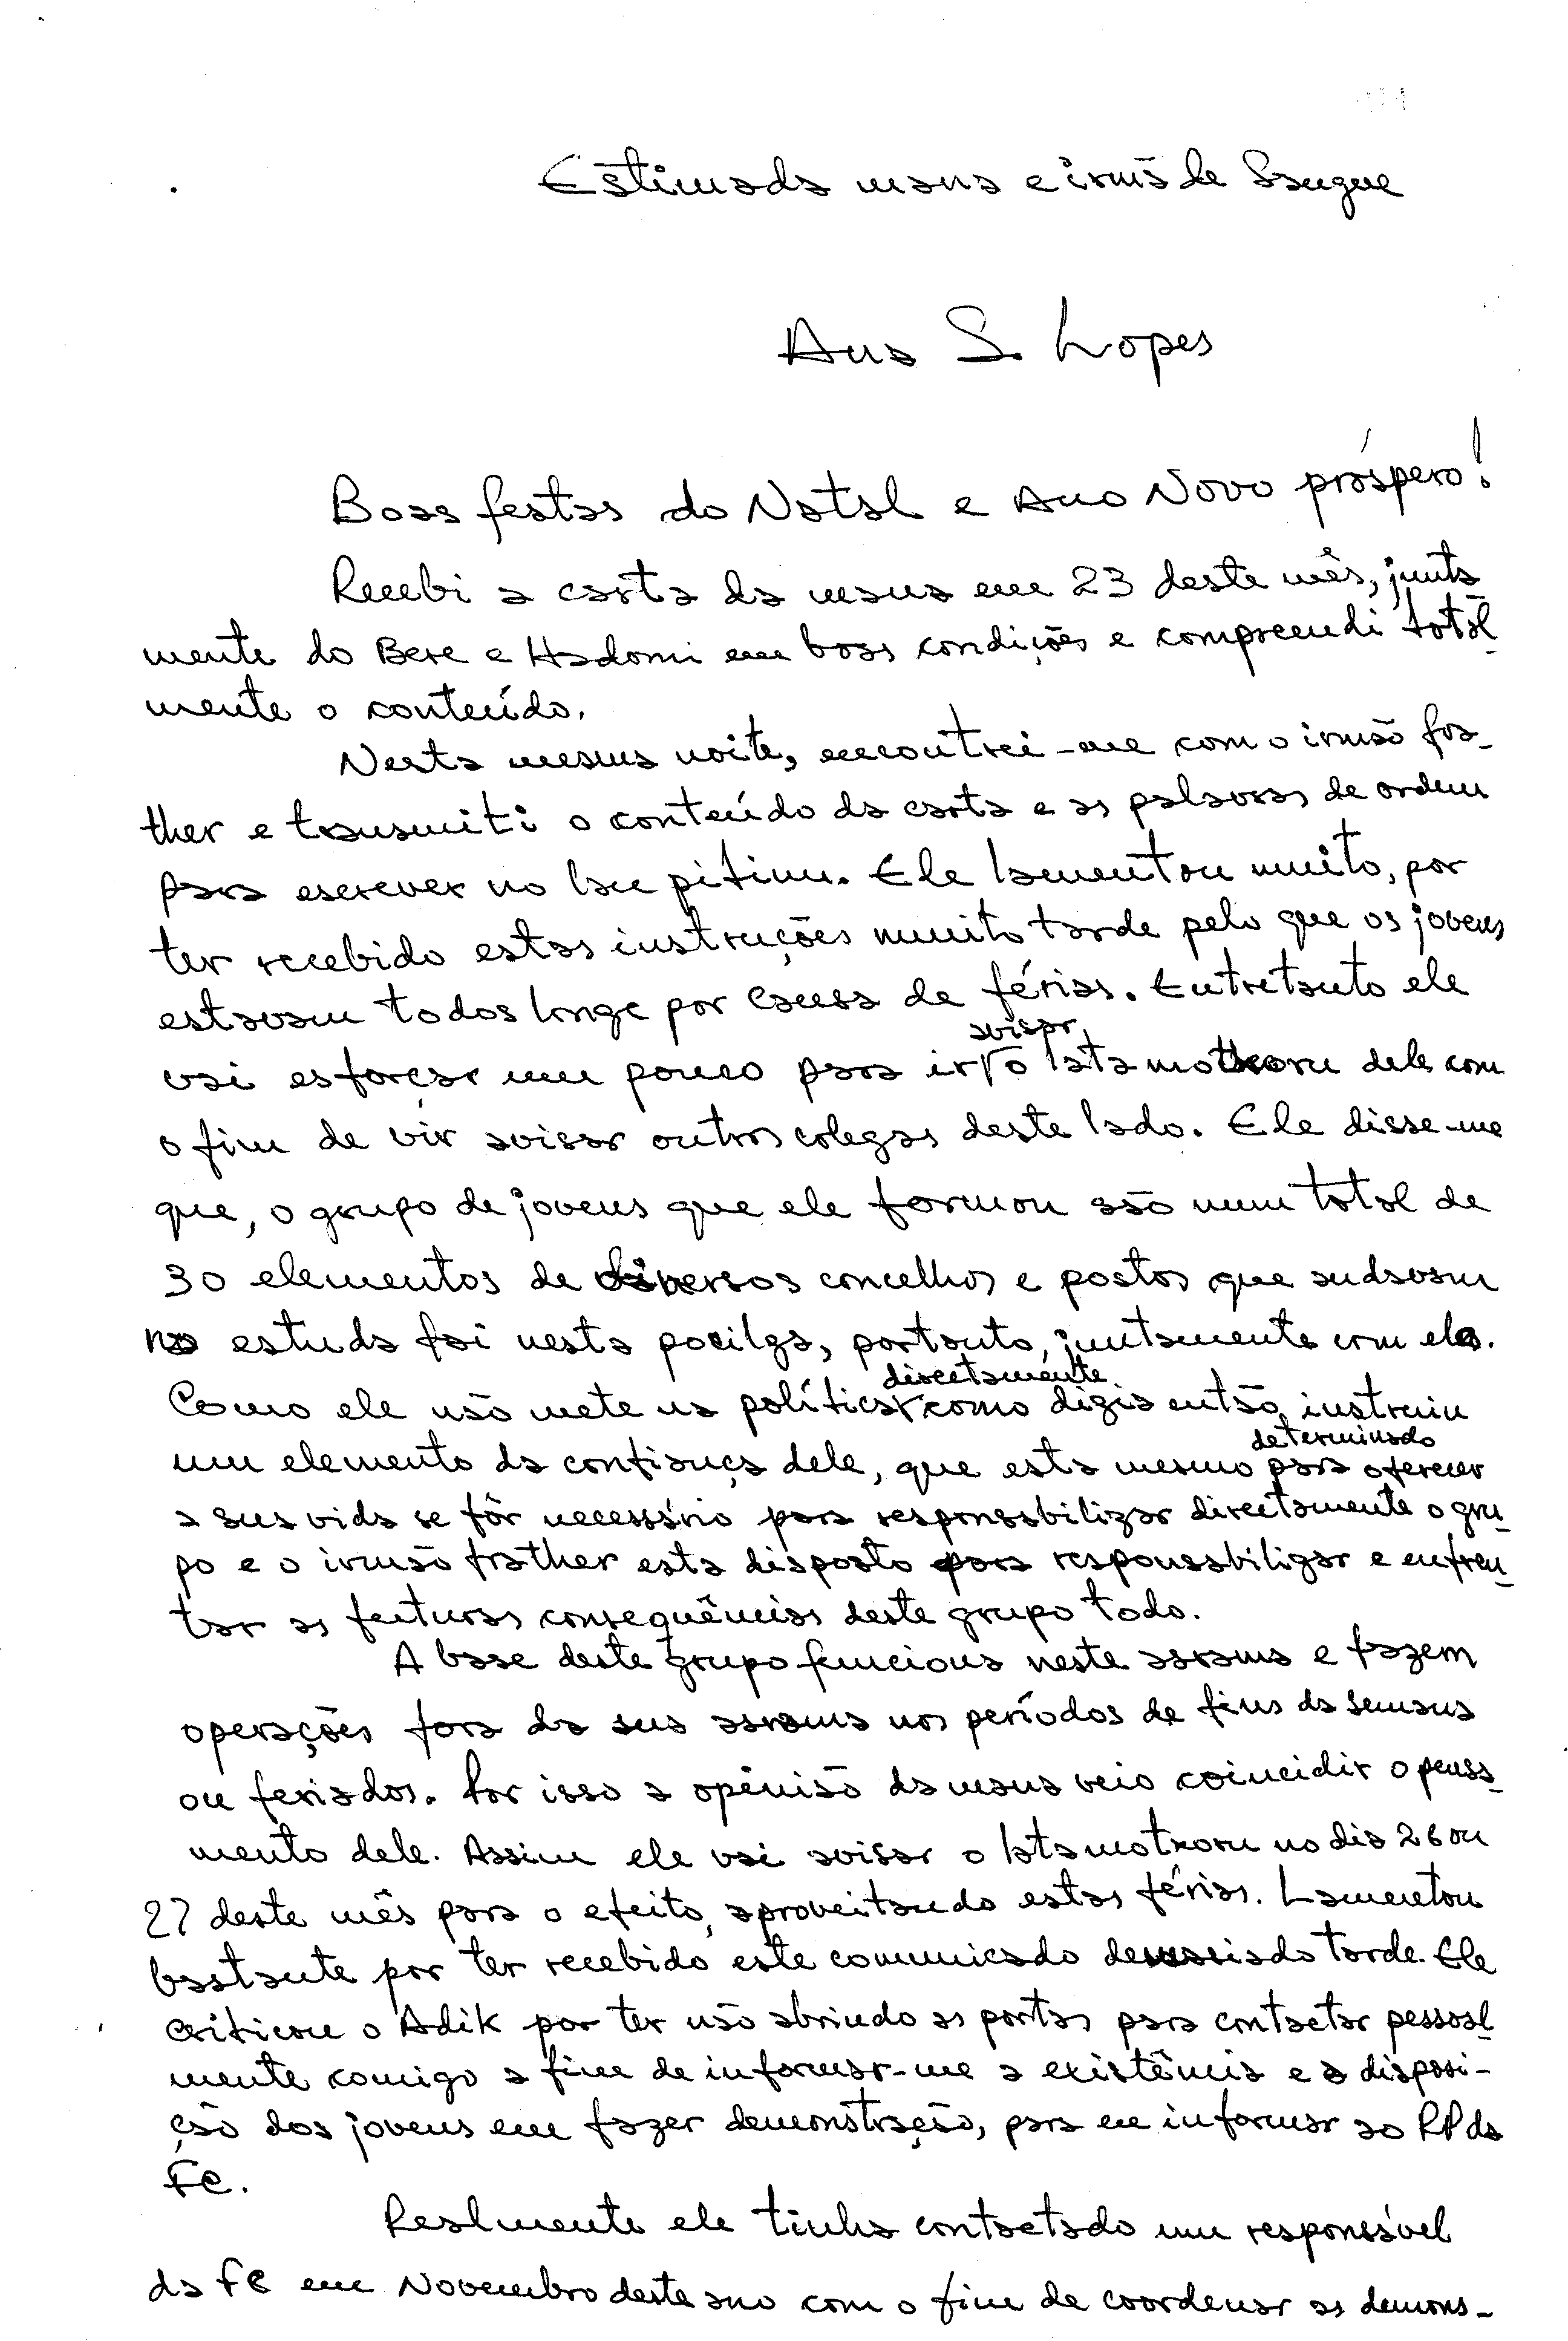 Estimada mana e irmã de Sangue
Ana S. Lopes
Boas festas do Natal e Ano Novo próspero!
Recebi a carta da mana em 23 deste mês, junta
mente do Bere e Hadomi em boas condições e compreendi total
mente o conteúdo.
Nesta mesma noite, encontrei-me com o irmão fra-
ther e transmiti o conteúdo da carta e as palavras de ordem
para escrever no lau pitinu. Ele lamentou muito, por
ter recebido estas instruções muito tarde pelo que os jovens
estavam todos longe por causa de férias. Entretanto ele
vai esforçar um pouco para ir avisar o lata dele com
o fim de vir avisar outros colegas deste lado. Ele disse-me
que, o grupo de jovens que ele formou são num total de
30 elementos de diversos concelhos e postos que andavam
no estuda foi nesta pocilga, portanto, juntamente com ele.
Como ele não mete na política directamente como dizia então, instruiu
um elemento da confiança dele, que esta mesmo determinado para oferecer
a sua vida se fôr necessário para responsabilizar directamente o gru
po e o irmão frather esta disposto para responsabilizar e enfren
tar as futuras consequências deste grupo todo.
A base deste grupo funciona neste asrama e fazem
operações fora da sua asrama nos períodos de fins da semana
ou feriados. Por isso a opinião da mana veio coincidir o pensa
mento dele. Assim ele vai avisar o lata no dia 26 ou
27 deste mês para o efeito, aproveitando estas férias. Lamentou
bastante por ter recebido este comunicado demasiado tarde. Ele
criticou o Adik por ter não abrindo as portas para contactar pessoal
mente comigo a fim de informar-me a existência e a disposi-
ção dos jovens em fazer demonstração, para eu informar ao RP da
FC.
Realmente ele tinha contactado um responsável
da FC em Novembro deste ano com o fim de coordenar as demons-